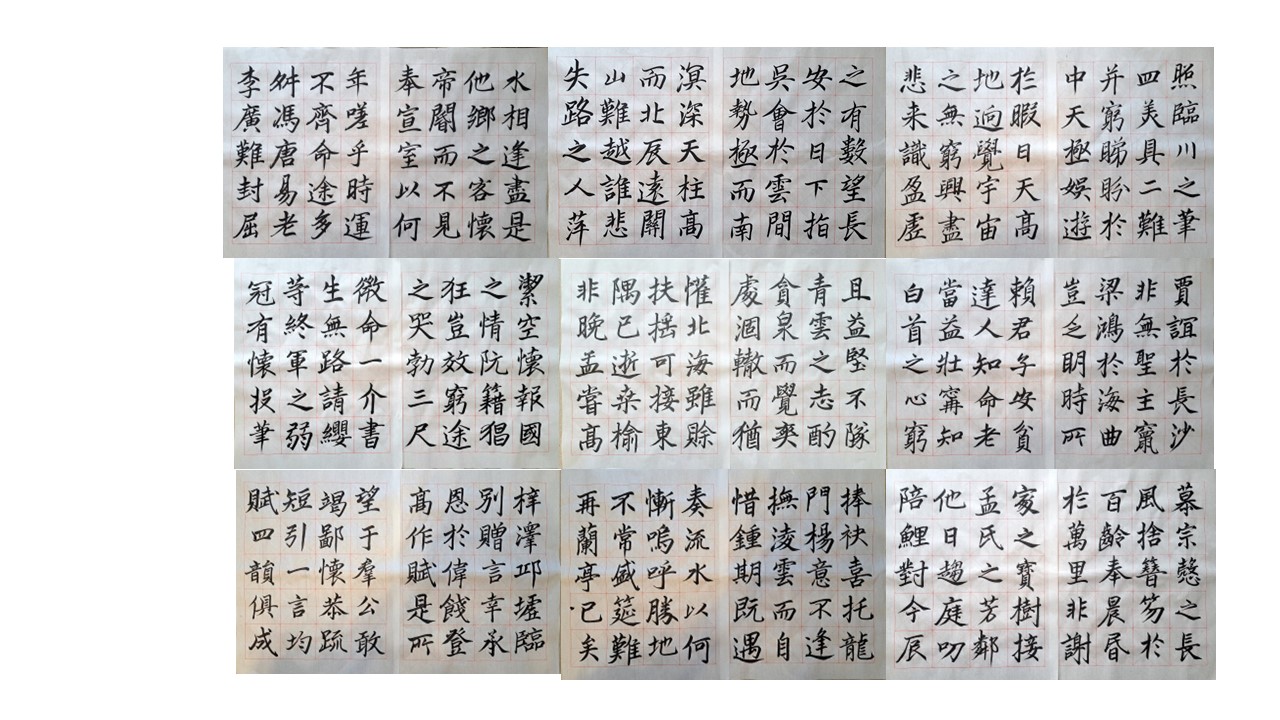 照臨川之筆
四美具二難
并窮睇眄於
中天極娛遊
於暇日天高
地迥覺宇宙
之無窮興盡
悲来識盈虛
之有數望長
安於日下指
吳會於雲間
地勢極而南
溟深天柱高
而北辰遠關
山難越誰悲
失路之人萍
水相逢盡是
他鄉之客懷
帝閽而不見
奉宣室以何
年嗟乎時運
不齊命途多
舛馮唐易老
李廣難封屈
賈誼於長沙
非無聖主竄
梁鴻於海曲
豈乏明時所
賴君子安貧
達人知命老
當益壯甯知
白首之心窮
且益堅不隊
青雲之志酌
貪泉而覺爽
處涸轍而猶
懽北海雖賒
扶搖可接東
隅已逝桑榆
非晚孟嘗高
潔空懷報國
之情阮籍猖
狂豈效窮途
之哭勃三尺
微命一介書
生無路請纓
等終軍之弱
冠有懷投筆
慕宗愨之長
風捨簪笏於
百齡奉晨昏
於萬里非謝
家之寶樹接
孟氏之芳鄰
他日趨庭叨
陪鯉對今辰
捧袂喜托龍
門楊意不逢
撫淩雲而自
惜鍾期既遇
奏流水以何
慚嗚呼勝地
不常盛筵難
再蘭亭已矣
梓澤邱墟臨
別贈言幸承
恩於偉餞登
高作賦是所
望于羣公敢
竭鄙懷恭疏
短引一言均
賦四韻俱成